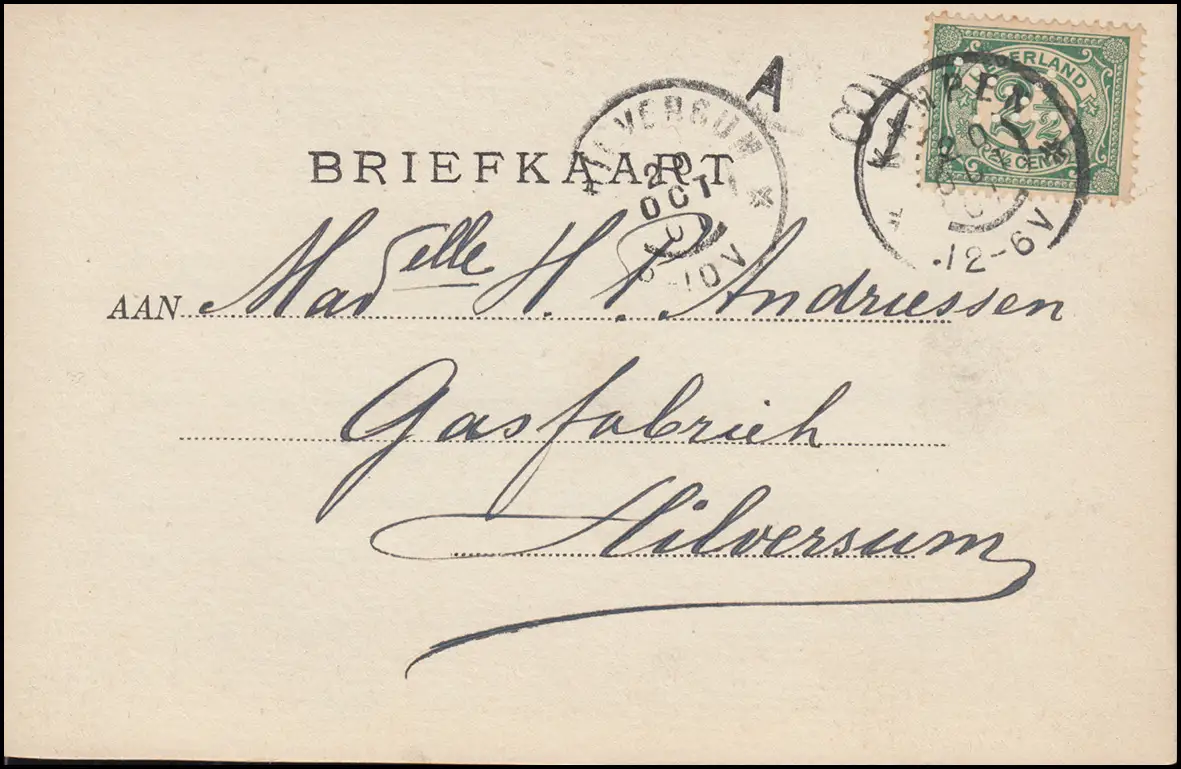 A 8
NEDERLAND
2½
2½ CENT
KAMPEN
20 OCT
12-6V
HILVERSUM
20
OCT
10V
BRIEFKAART
AAN Madelle H. P. Andriessen
Gasfabriek
Hilversum